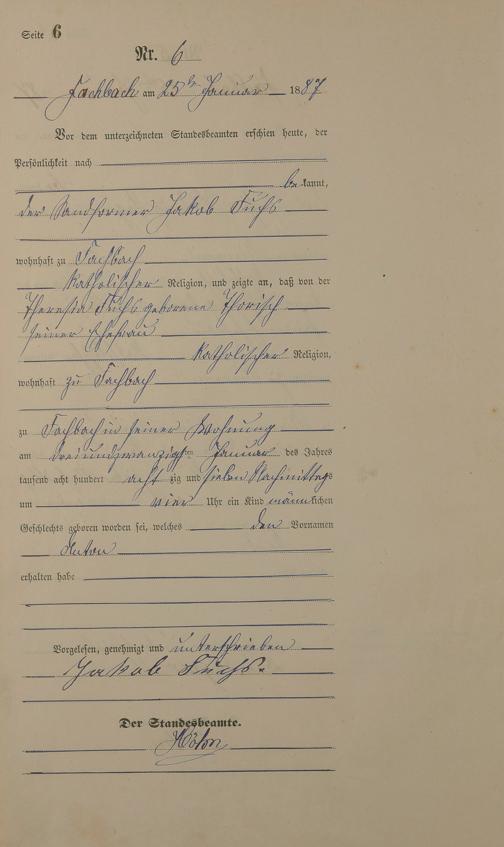 Seite 6
Nr. 6
Fachbach am 25ten Januar 1887
Vor dem unterzeichneten Standesbeamten erschien heute, der
Persönlichkeit nach
bekannt,
der Sandformer Jakob Fuchs
wohnhaft zu Fachbach
katholischer Religion, und zeigte an, daß von der
Theresia Fuchs geborene Thorisch
seiner Ehefrau
katholischer Religion,
wohnhaft zu Fachbach
zu Fachbach in seiner Wohnung
am dreiundzwanzigsten Januar des Jahres
tausend acht hundert acht zig und sieben Nachmittags
um vier Uhr ein Kind männlichen
Geschlechts geboren worden sei, welches den Vornamen
Anton
erhalten habe
Vorgelesen, genehmigt und unterschrieben
Jakob Fuchs.
Der Standesbeamte.